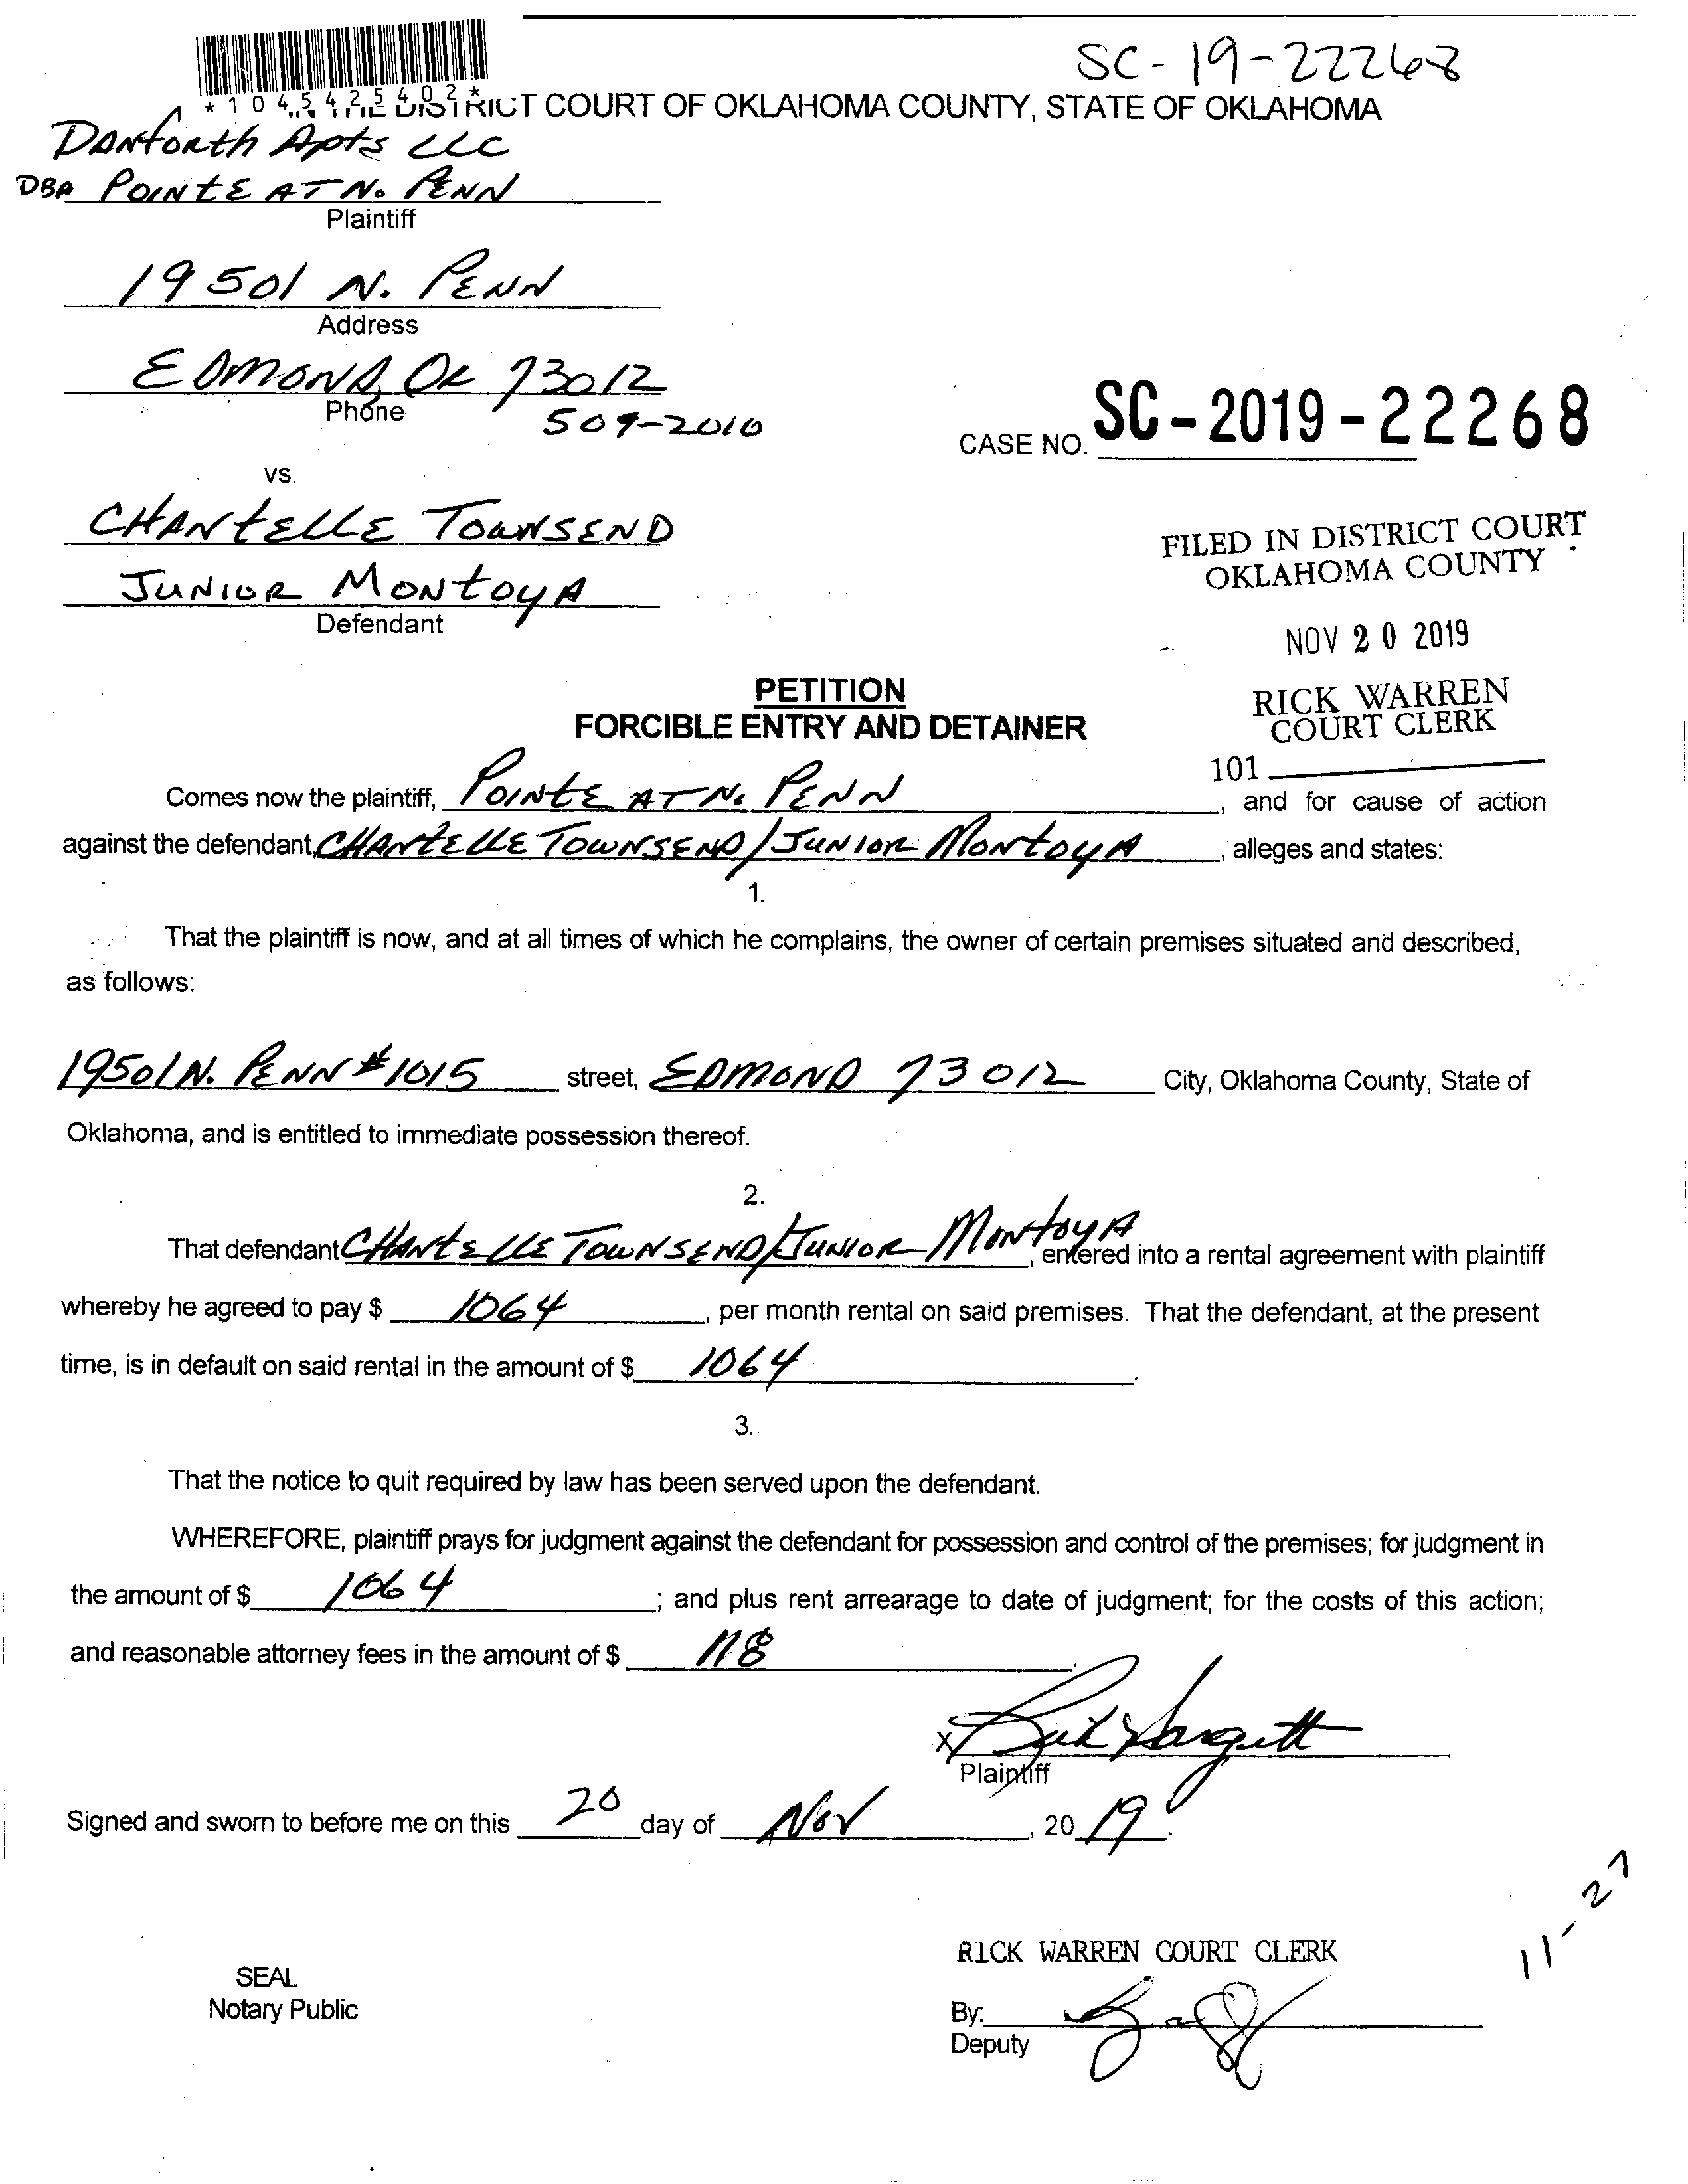 SC-19-22268
*1045425402*
DISTRICT COURT OF OKLAHOMA COUNTY, STATE OF OKLAHOMA
Danforth Apts LLC
DBA POINTE AT N. PENN
Plaintiff
19501 N. PENN
Address
EDMOND, OK 73012
Phone
509-2010
CASE NO. SC-2019-22268
vs.
CHANTELLE TOWNSEND
JUNIOR MONTOYA
Defendant
FILED IN DISTRICT COURT
OKLAHOMA COUNTY
NOV 20 2019
RICK WARREN
COURT CLERK
101
PETITION
FORCIBLE ENTRY AND DETAINER
Comes now the plaintiff, POINTE AT N. PENN, and for cause of action
against the defendant, CHANTELLE TOWNSEND/JUNIOR MONTOYA, alleges and states:
1.
That the plaintiff is now, and at all times of which he complains, the owner of certain premises situated and described,
as follows:
19501 N. PENN #1015 street, EDMOND 73012 City, Oklahoma County, State of
Oklahoma, and is entitled to immediate possession thereof.
2.
That defendant CHANTELLE TOWNSEND/JUNIOR MONTOYA, entered into a rental agreement with plaintiff
whereby he agreed to pay $ 1064, per month rental on said premises. That the defendant, at the present
time, is in default on said rental in the amount of $ 1064.
3.
That the notice to quit required by law has been served upon the defendant.
WHEREFORE, plaintiff prays for judgment against the defendant for possession and control of the premises; for judgment in
the amount of $ 1064; and plus rent arrearage to date of judgment; for the costs of this action;
and reasonable attorney fees in the amount of $ 118
X
Plaintiff
Signed and sworn to before me on this 20 day of Nov, 2019.
11-27
RICK WARREN COURT CLERK
SEAL
Notary Public
By:
Deputy